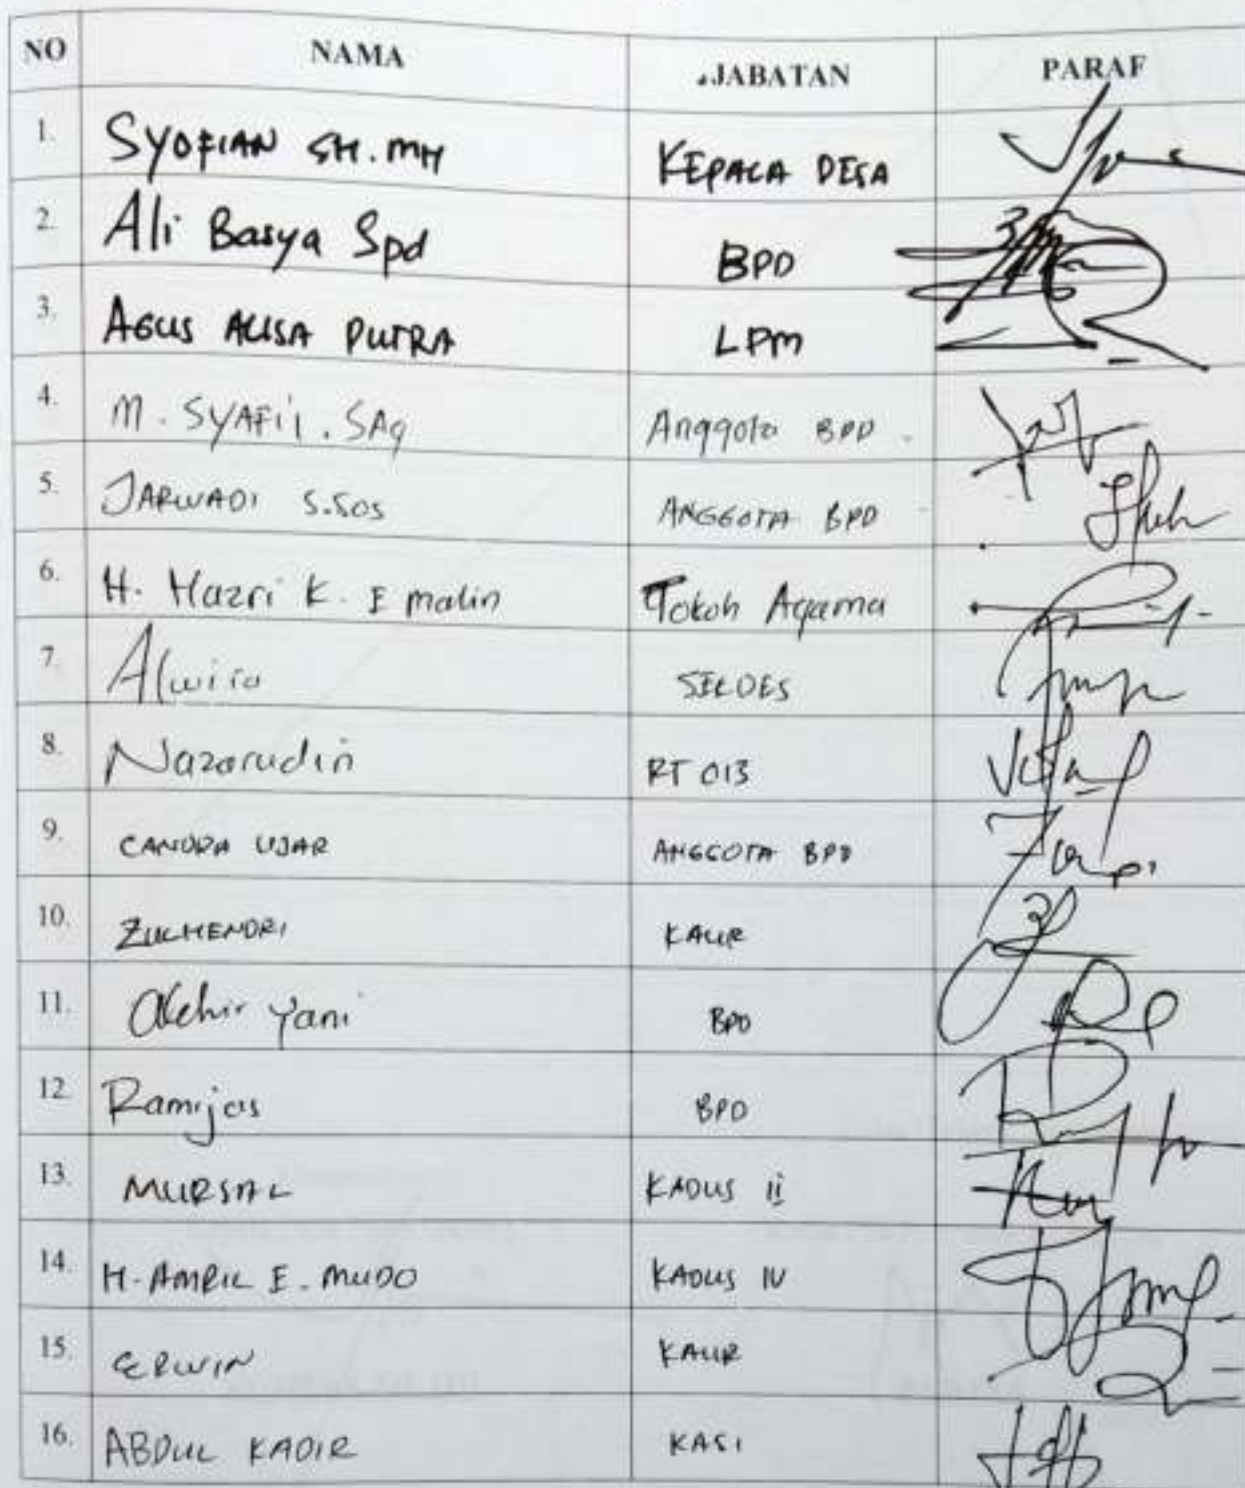 NO NAMA JABATAN PARAF
1. SYOFIAN SH.MH KEPALA DESA
2. Ali Basya Spd BPD
3. AGUS ALISA PUTRA LPM
4. M. SYAFI'I. SAg Anggota BPD
5. JARWADI S.SOS ANGGOTA BPD
6. H. Hazri K. E malin Tokoh Agama
7. SEKDES
8. Nazarudin RT 013
9. CANDRA UJAR ANGGOTA BPD
10. ZULHENDRI KAUR
11. Akhir yani BPD
12. Ramijas BPD
13. MURSAL KADUS II
14. H. AMRIL E. MUDO KADUS IV
15. ERWIN KAUR
16. ABDUL KADIR KASI